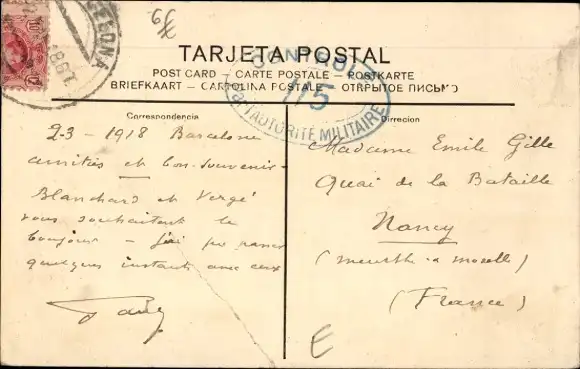 TARJETA POSTAL
POST CARD — CARTE POSTALE — POSTKARTE
BRIEFKAART — CARTOLINA POSTALE — ОТКРЫТОЕ ПИСЬМО
CONTRÔLE
115
par l'AUTORITÉ MILITAIRE
Correspondencia
2-3-1918 Barcelone
amitiés et bon souvenir -
Blanchard et Vergé
vous souhaitent le
bonjour - j'ai pu passer
quelques instants avec eux
Direccion
Madame Emile Gille
Quai de la Bataille
Nancy
(Meurthe & Moselle)
(France)
E